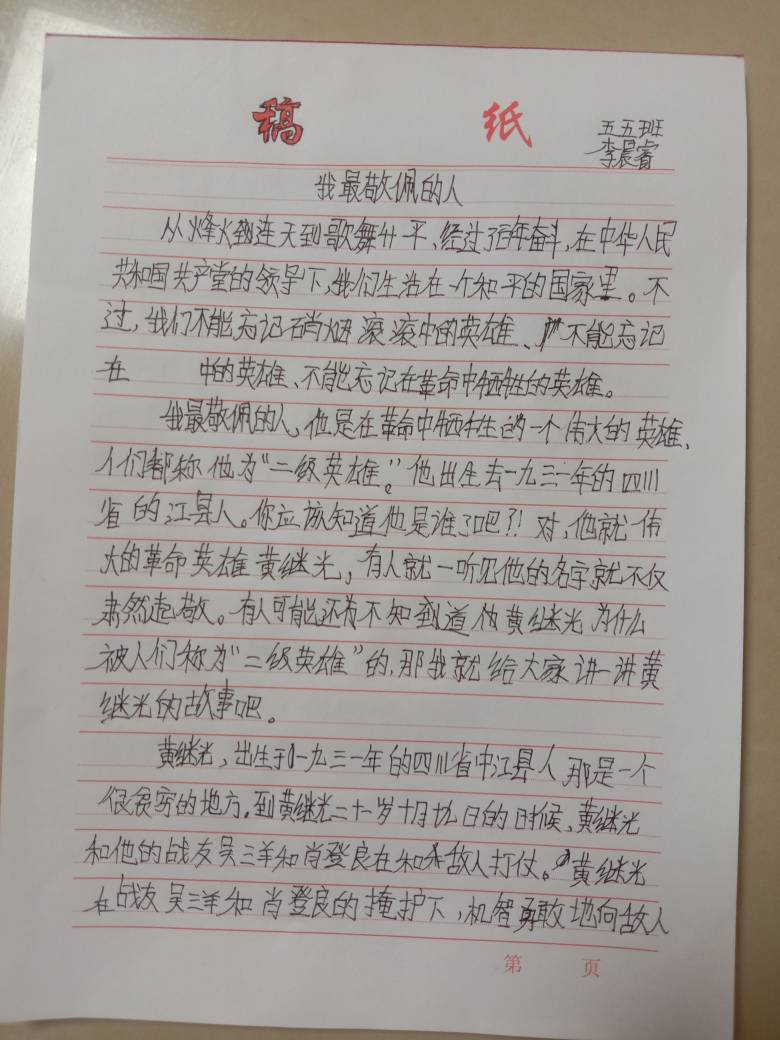 稿 纸
五五班
李晨睿
我最敬佩的人
从烽火连天到歌舞升平、经过百年奋斗,在中华人民
共和国共产党的领导下,我们生活在一个和平的国家里。不
过,我们不能忘记硝烟滚滚中的英雄、不能忘记
在 中的英雄、不能忘记在革命中牺牲的英雄。
我最敬佩的人,他是在革命中牺牲的一个伟大的英雄、
人们都称他为“二级英雄。”他出生去一九三一年的四川
省的江县人。你应该知道他是谁了吧?!对,他就伟
大的革命英雄黄继光,有人就一听见他的名字就不仅
肃然起敬。有人可能还有不知到道 黄继光为什么
被人们称为“二级英雄”的,那我就给大家讲一讲黄
继光的故事吧。
黄继光,出生于一九三一年的四川省中江县人 那是一个
很贫穷的地方。到黄继光二十一岁十月十九日的时候、黄继光
和他的战友吴三羊和肖登良在和敌人打仗。黄继光
在战友吴三羊和肖登良的掩护下,机智勇敢地向敌人
第 页